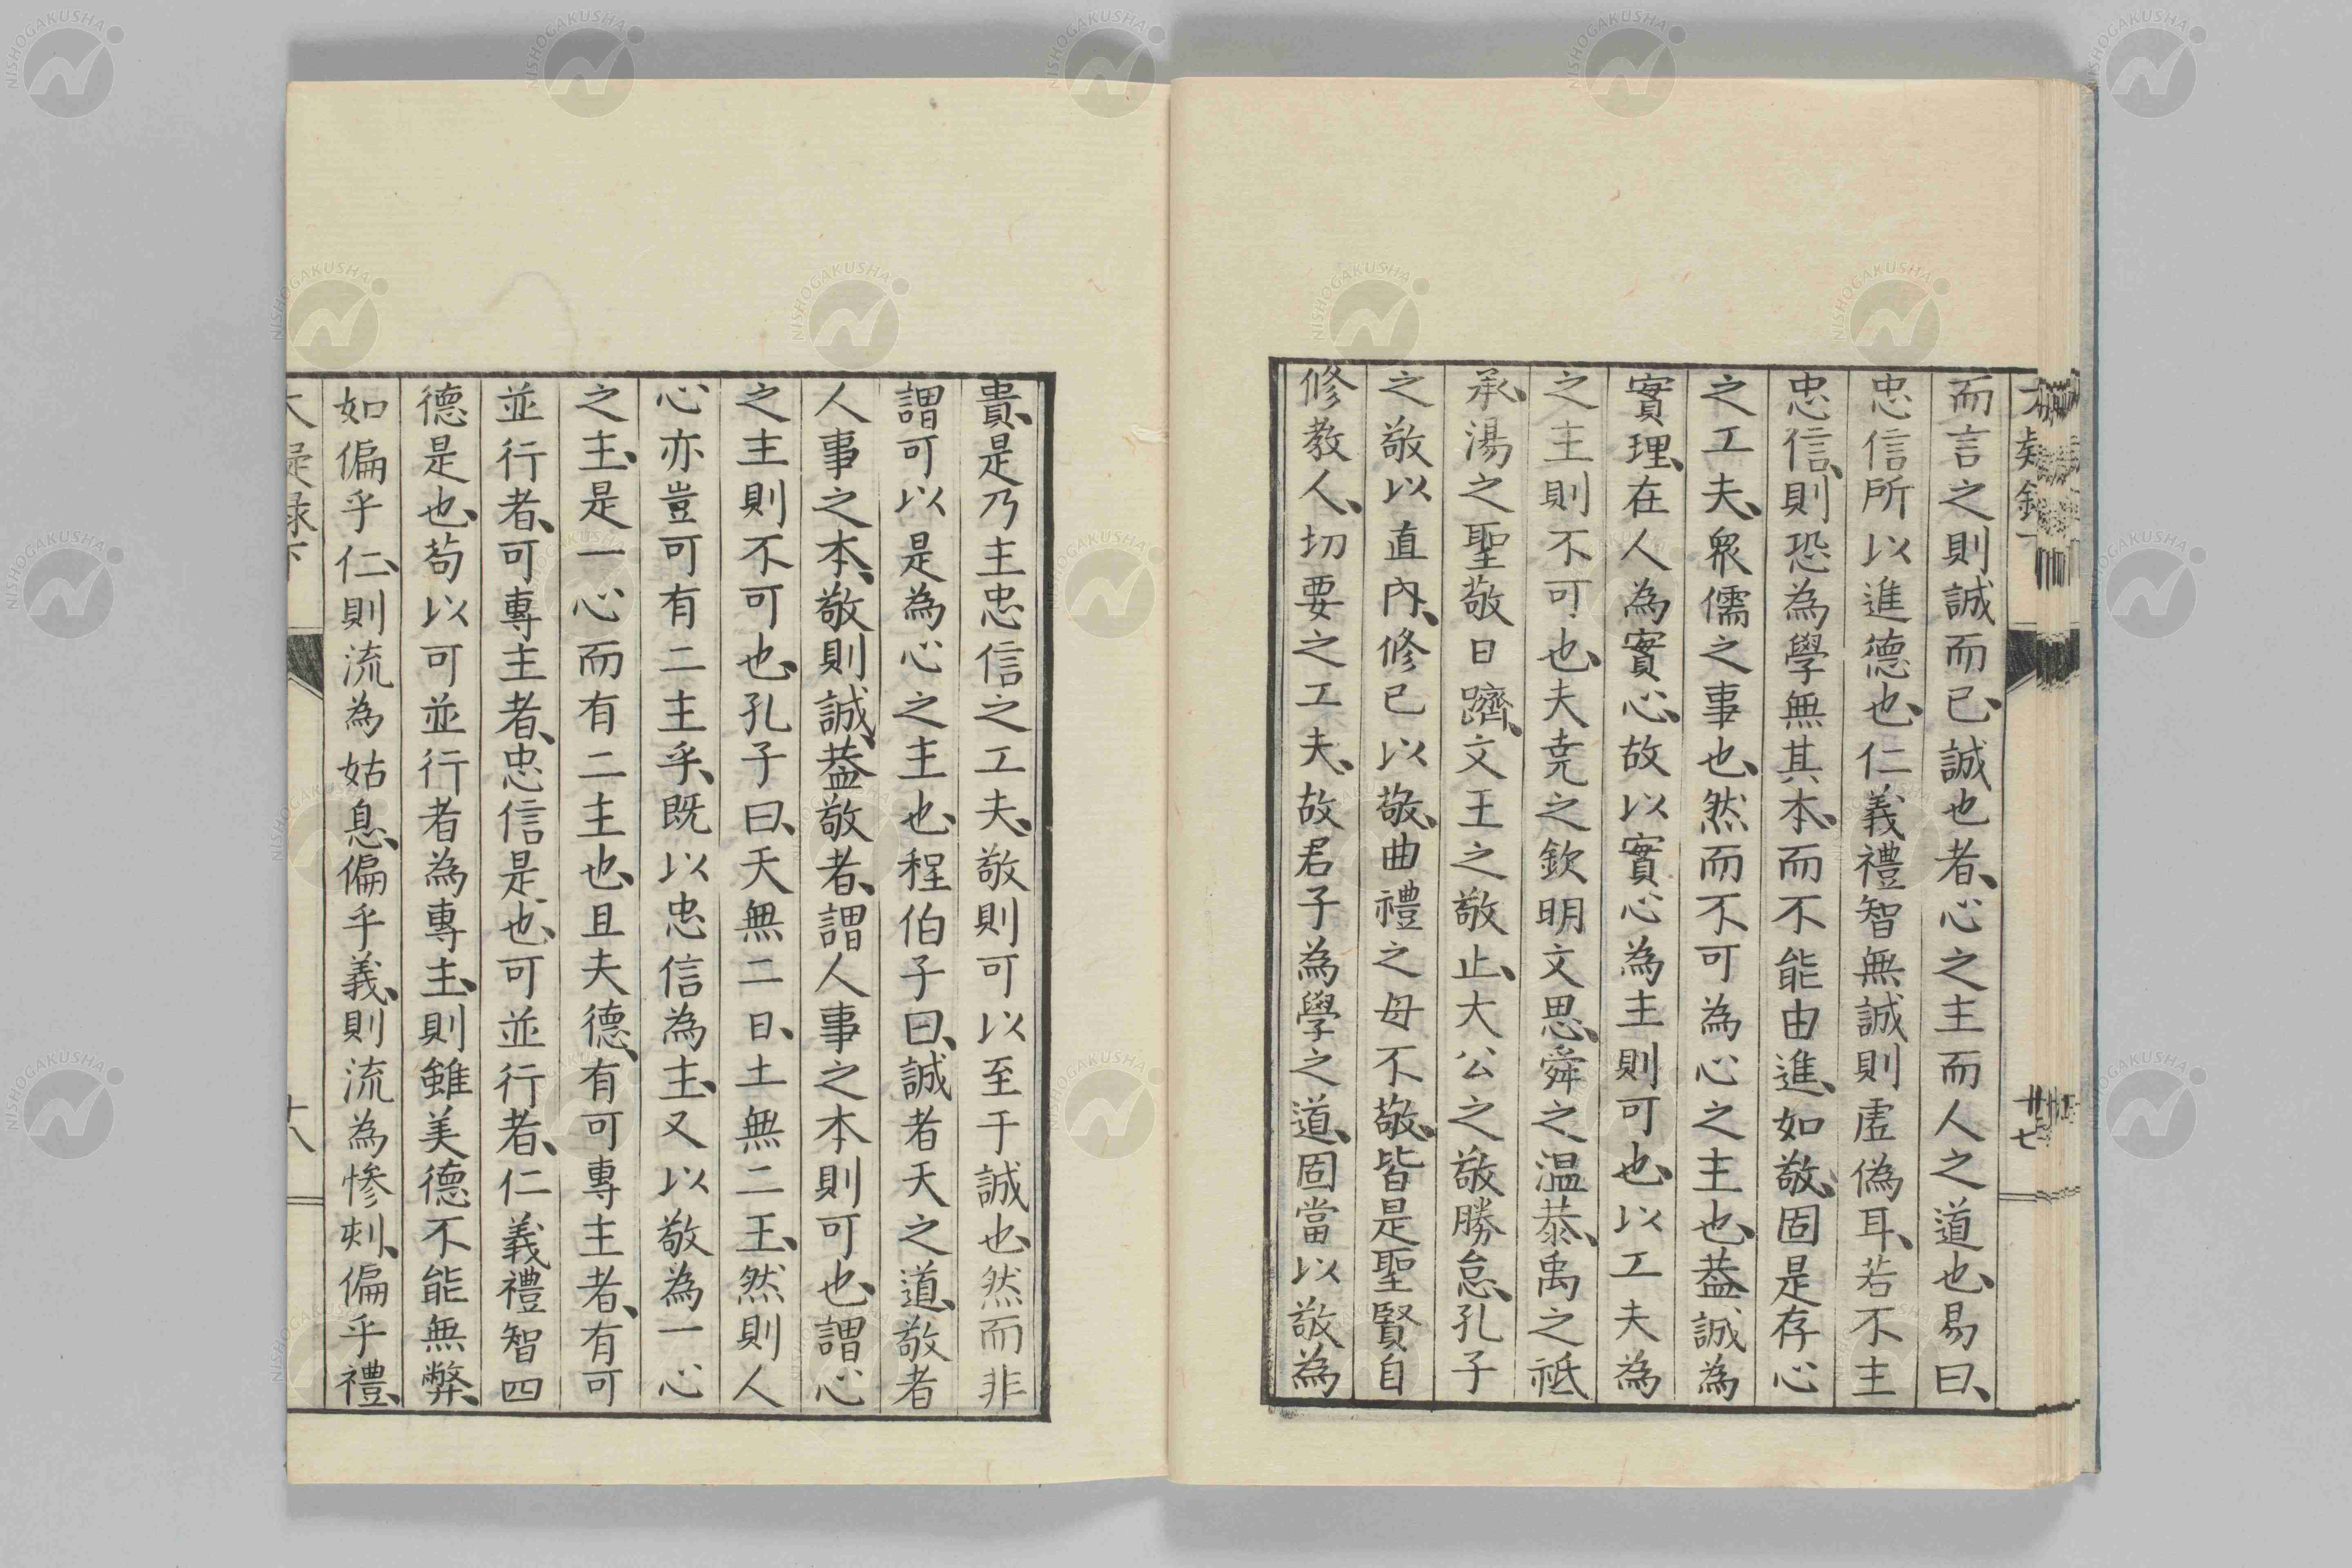 而言之則誠而已、誠也者、心之主而人之道也、易曰、
忠信所以進德也、仁義禮智無誠則虛偽耳、若不主
忠信、則恐為學無其本、而不能由進、如敬、固是存心
之工夫、衆儒之事也、然而不可為心之主也、葢誠為
實理、在人為實心、故以實心為主則可也、以工夫為
之主則不可也、夫堯之欽明文思、舜之温恭、禹之祗
承、湯之聖敬日躋、文王之敬止、大公之敬勝怠、孔子
之敬以直內、修己以敬、曲禮之毋不敬、皆是聖賢自
修教人、切要之工夫、故君子為學之道、固當以敬為
貴、是乃主忠信之工夫、敬則可以至于誠也、然而非
謂可以是為心之主也、程伯子曰、誠者天之道、敬者
人事之本、敬則誠、葢敬者、謂人事之本則可也、謂心
之主則不可也、孔子曰、天無二日、土無二王、然則人
心亦豈可有二主乎、既以忠信為主、又以敬為一心
之主、是一心而有二主也、且夫德、有可專主者、有可
並行者、可專主者、忠信是也、可並行者、仁義禮智四
德是也、苟以可並行者為專主、則雖美德不能無弊、
如偏乎仁、則流為姑息、偏乎義、則流為惨刺、偏乎禮、
NISHOGAKUSHA